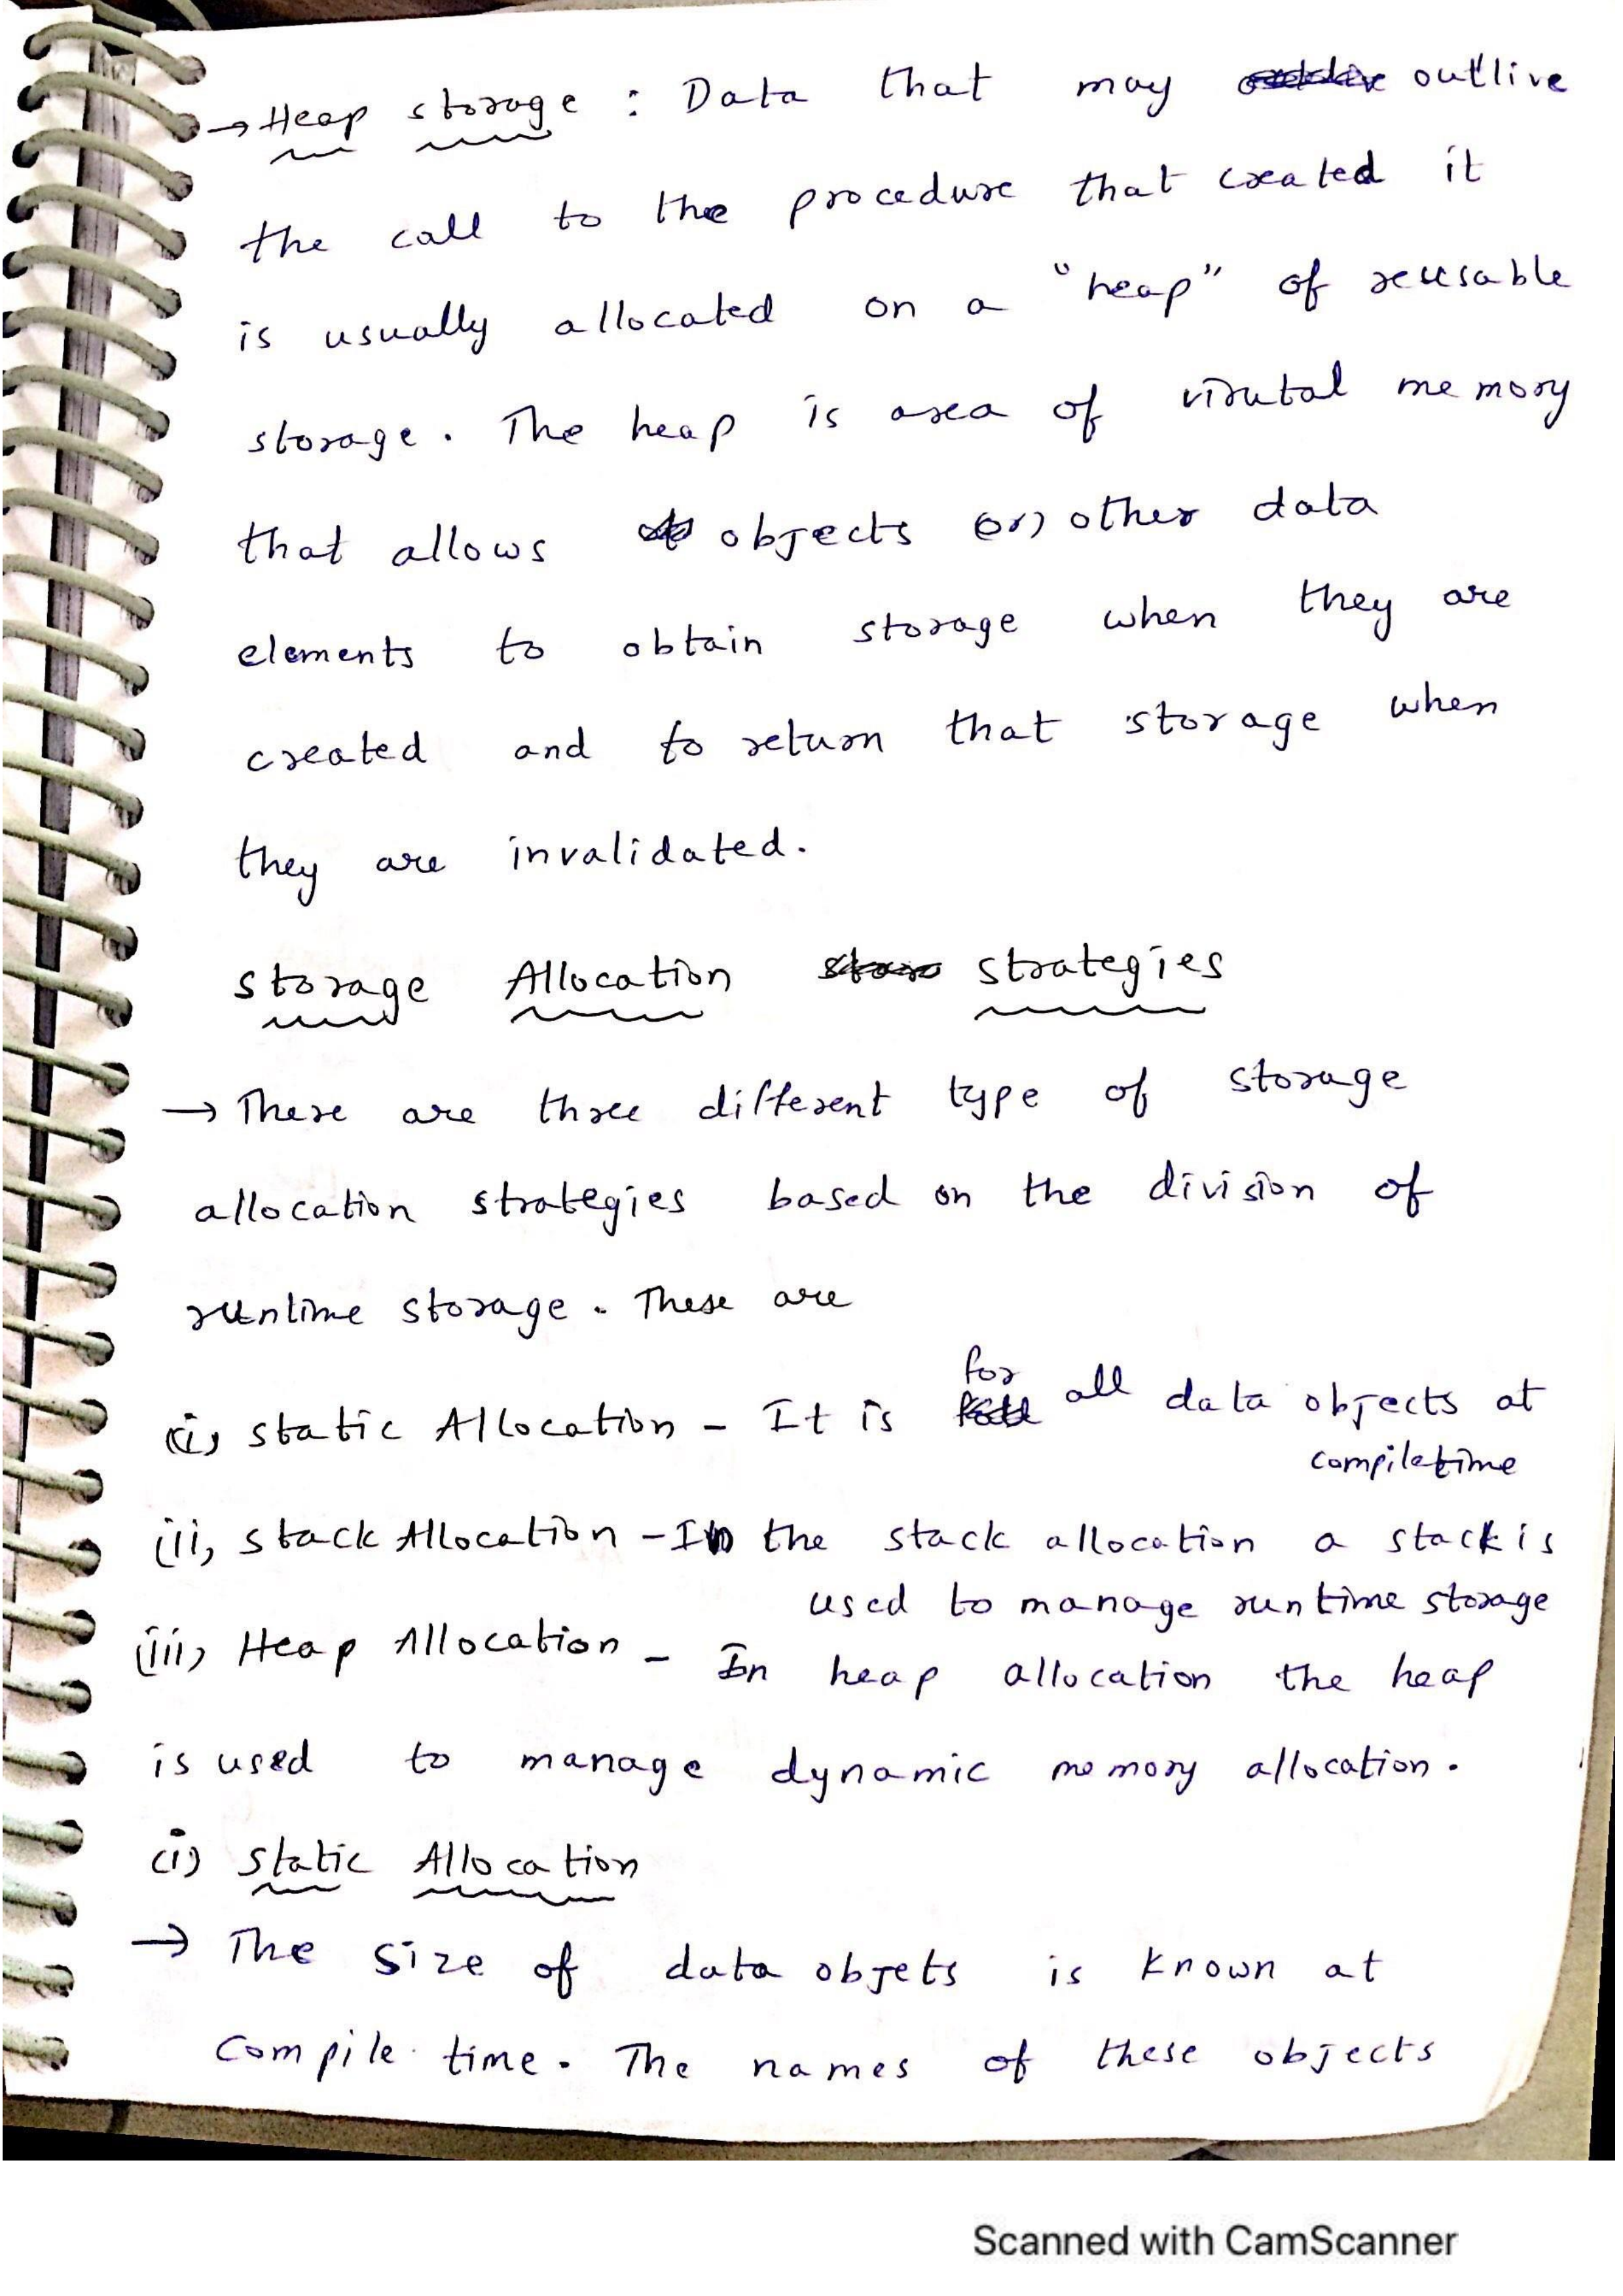 → Heap storage : Data that may outlive
the call to the procedure that created it
is usually allocated on a "heap" of reusable
storage. The heap is area of virutal memory
that allows objects (or) other data
elements to obtain storage when they are
created and to return that storage when
they are invalidated.
storage Allocation strategies
→ There are three different type of storage
allocation strategies based on the division of
runtime storage. These are
(i) static Allocation - It is for all data objects at
compiletime
(ii) stack Allocation - In the stack allocation a stack is
used to manage runtime storage
(iii) Heap Allocation - In heap allocation the heap
is used to manage dynamic momory allocation.
(i) static Allocation
→ The size of data objets is known at
compile time. The names of these objects
Scanned with CamScanner